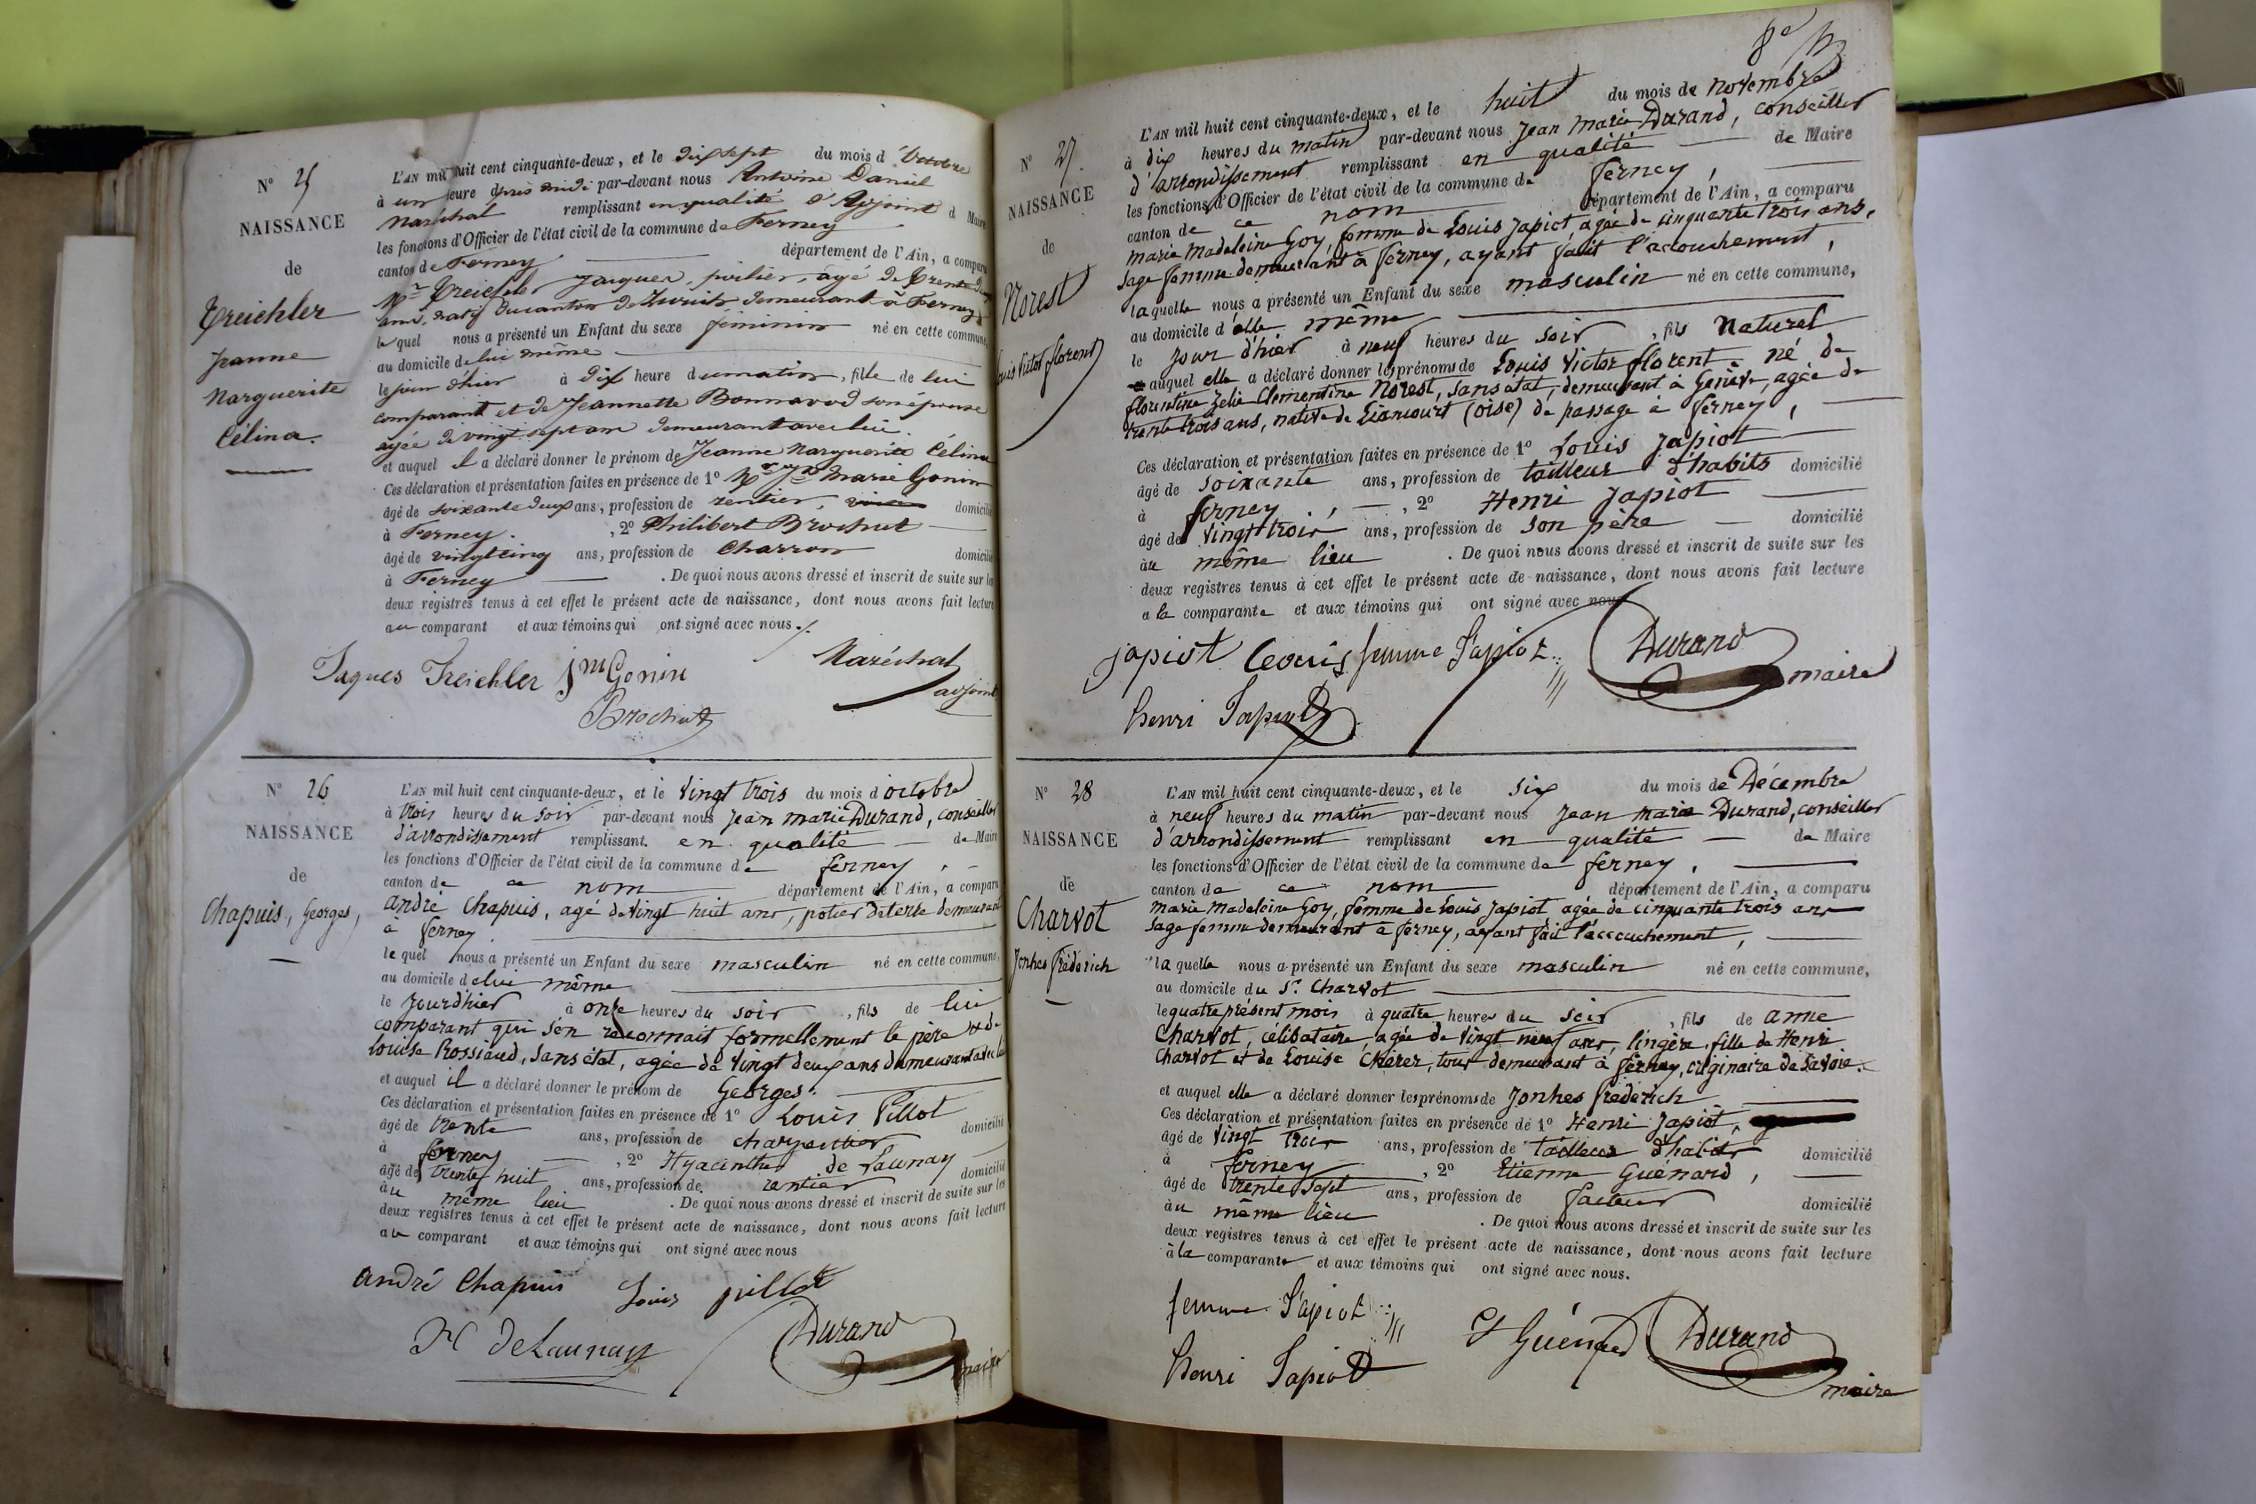 N° 25
NAISSANCE
de
Treichler
Jeanne
Marguerite
Célina.
L'AN mil huit cent cinquante-deux, et le dix sept du mois d'Octobre
à un heure après midi par-devant nous Antoine Daniel
Maréchal remplissant en qualité d'Adjoint d Maire
les fonctions d'Officier de l'état civil de la commune de Ferney
canton de Ferney département de l'Ain, a comparu
Mr Treichler Jacques, potier, âgé de trente deux
ans, natif du canton de Zurich demeurant à Ferney
le quel nous a présenté un Enfant du sexe féminin né en cette commune,
au domicile de lui même
le jour d'hier à dix heure du matin, fille de lui
comparant et de Jeannette Bonnavod son épouse
agée de vingt sept ans demeurant avec lui.
et auquel il a déclaré donner le prénom de Jeanne Marguerite Célina
Ces déclaration et présentation faites en présence de 1° Mr Jn Marie Gonin
âgé de soixante deux ans, profession de rentier domicilié
à Ferney. , 2° Philibert Brochut
âgé de vingt cinq ans, profession de Charron domicilié
à Ferney . De quoi nous avons dressé et inscrit de suite sur les
deux registres tenus à cet effet le présent acte de naissance, dont nous avons fait lecture
au comparant et aux témoins qui ont signé avec nous.
Jaques Treichler Jm Gonin Maréchal
adjoint
Brochut
N° 26
NAISSANCE
de
Chapuis, Georges,
L'AN mil huit cent cinquante-deux, et le Vingt trois du mois d'octobre
à trois heures du soir par-devant nous Jean marie Durand, conseiller
d'arrondissement remplissant en qualité de Maire
les fonctions d'Officier de l'état civil de la commune de ferney,
canton de ce nom département de l'Ain, a comparu
andré Chapuis, agé de Vingt huit ans, potier de terre demeurant
à ferney.
le quel nous a présenté un Enfant du sexe masculin né en cette commune,
au domicile de lui même
le jour d'hier à onze heures du soir, fils de lui
comparant qui s'en reconnait formellement le père et de
Louise Rossiaud, sans état, agée de Vingt deux ans demeurant avec lui
et auquel il a déclaré donner le prénom de Georges.
Ces déclaration et présentation faites en présence de 1° Louis Pillot
âgé de trente ans, profession de charpentier domicilié
à ferney , 2° Hyacinthe de Launay
âgé de trente huit ans, profession de rentier domicilié
au même lieu . De quoi nous avons dressé et inscrit de suite sur les
deux registres tenus à cet effet le présent acte de naissance, dont nous avons fait lecture
au comparant et aux témoins qui ont signé avec nous
andré Chapuis Louis pillot
H deLaunay Durand
maire
N° 27.
NAISSANCE
de
Norest
Louis Victor florent
L'AN mil huit cent cinquante-deux, et le huit du mois de novembre
à dix heures du matin par-devant nous Jean Marie Durand, conseiller
d'arrondissement remplissant en qualité de Maire
les fonctions d'Officier de l'état civil de la commune de ferney,
canton de ce nom département de l'Ain, a comparu
marie Madeleine Goy, femme de Louis Japiot agée de cinquante trois ans,
sage femme demeurant à ferney, ayant fait l'accouchement,
la quelle nous a présenté un Enfant du sexe masculin né en cette commune,
au domicile d'elle même
le jour d'hier à neuf heures du soir, fils Naturel
auquel elle a déclaré donner les prénoms de Louis Victor florent. né de
florentine Zelie Clementine Norest, sans état, demeurant à Genève, agée de
trente trois ans, native de Liancourt (oise) de passage à ferney,
Ces déclaration et présentation faites en présence de 1° Louis Japiot
âgé de soixante ans, profession de tailleur d'habits domicilié
à ferney, , 2° Henri Japiot
âgé de Vingt trois ans, profession de son père domicilié
au même lieu . De quoi nous avons dressé et inscrit de suite sur les
deux registres tenus à cet effet le présent acte de naissance, dont nous avons fait lecture
a la comparante et aux témoins qui ont signé avec nous
japiot Louis femme Japiot Durand
maire
henri Japiot
N° 28
NAISSANCE
de
Charvot
Jonhes fréderich
L'AN mil huit cent cinquante-deux, et le six du mois de Décembre
à neuf heures du matin par-devant nous Jean marie Durand, conseiller
d'arrondissement remplissant en qualité de Maire
les fonctions d'Officier de l'état civil de la commune de ferney,
canton de ce nom département de l'Ain, a comparu
marie Madeleine Goy, femme de Louis Japiot agée de cinquante trois ans
sage femme demeurant à ferney, ayant fait l'accouchement,
la quelle nous a présenté un Enfant du sexe masculin né en cette commune,
au domicile du Sr. Charvot
le quatre présent mois à quatre heures du soir, fils de anne
Charvot, célibataire, agée de Vingt neuf ans, lingère, fille de Henri
Charvot et de Louise Cherer, tous demeurant à ferney, originaire de Savoie.
et auquel elle a déclaré donner les prénoms de Jonhes frederich
Ces déclaration et présentation faites en présence de 1° Henri Japiot,
âgé de Vingt trois ans, profession de tailleur d'habits domicilié
à ferney , 2° Etienne Guénard,
âgé de trente sept ans, profession de facteur domicilié
au même lieu . De quoi nous avons dressé et inscrit de suite sur les
deux registres tenus à cet effet le présent acte de naissance, dont nous avons fait lecture
à la comparante et aux témoins qui ont signé avec nous.
femme Japiot Et Guénard Durand
maire
henri Japiot